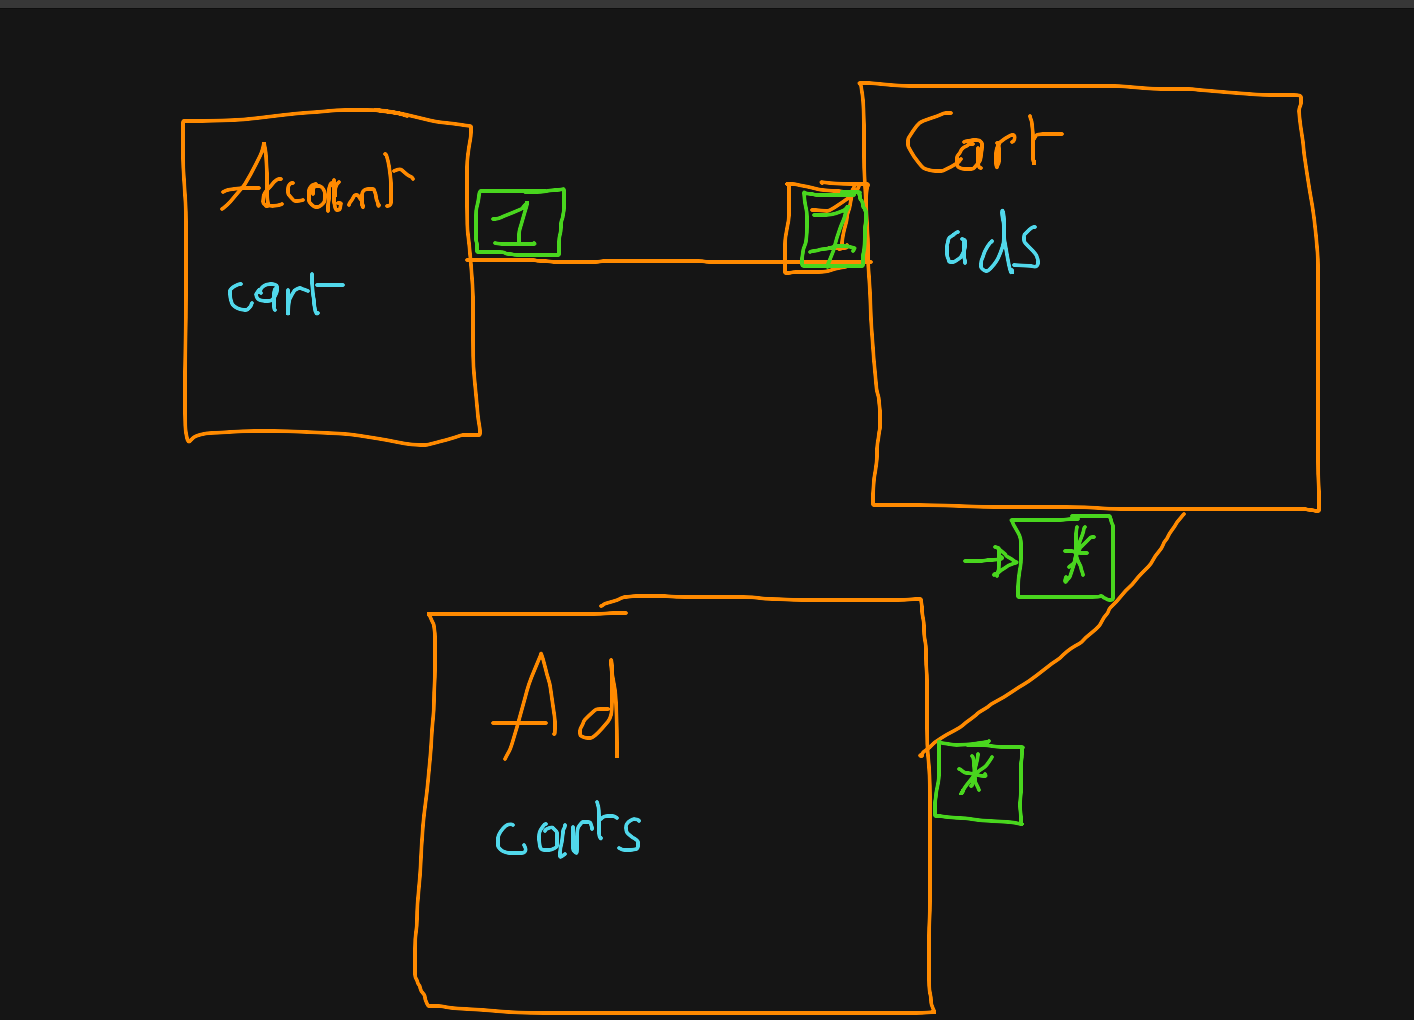 Account
cart
1
1
Cart
ads
*
Ad
carts
*